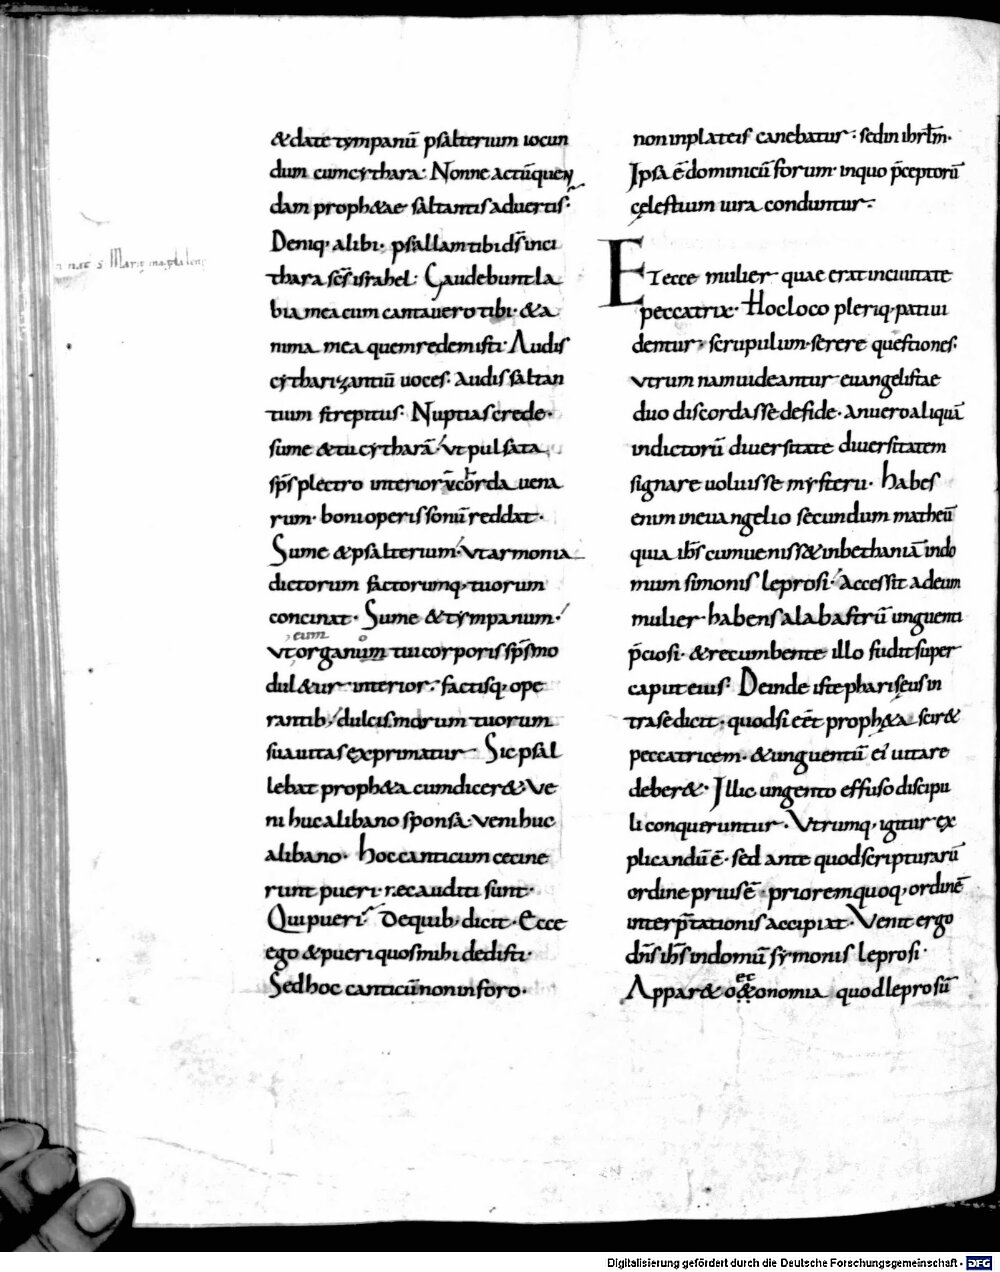 &date tympanū psalterium iocun
dum cum cythara· Nonne actūquen
dam proph&ae saltantis aduertis·
Deniq· alibi· psallam tibi dś in ci
thara scś israhel· Gaudebunt la
bia mea cum cantauero tibi· &a
nima mea quem redemisti· Audis
cytharizantiū uoces· audis saltan
tium strepitus· Nuptias crede·
sume &tu cytharā· vt pulsata
sp̄s plectro interior chorda uena
rum· boni operis sonū reddat·
Sume &psalterium· vt armonia
dictorum factorumq· tuorum
concinat· Sume &tympanum·
cum
vt organum tui corporis sp̄s mo
dul&ur interior· factisq· ope
rantib· dulcis morum tuorum
suauitas exprimatur Sic psal
lebat proph&a cum dicer&· Ve
ni huc a libano sponsa· veni huc
a libano· hoc canticum cecine
runt pueri· nec auditi sunt·
Qui pueri· De quib· dicit· Ecce
ego &pueri quos mihi dedisti·
Sed hoc canticū non in foro·
n nat s Marie magdalene
non in plateis canebatur· sed in ihrl̄m·
Ipsa ē dominicū forum· in quo p̄ceptorū
celestium iura conduntur·
Et ecce mulier quae erat in ciuitate
peccatrix· Hoc loco pleriq· pati ui
dentur· scrupulum· serere questiones·
vtrum nam uideantur euangelistae
duo discordasse de fide· an uero aliquā
in dictorū diuersitate diuersitatem
signare uoluisse mysterii· habes
enim in euangelio secundum matheū
quia ihs̄ cum ueniss& in bethaniā in do
mum simonis leprosi· accessit ad eum
mulier habens alabastrū unguenti
p̄ciosi· &recumbente illo fudit super
caput eius· Deinde iste phariseus in
tra se dicit· quod si eēt proph&a scir&
peccatricem· &unguentū ei uitare
deber&· Illic ungento effuso discipu
li conqueruntur· Vtrumq· igitur ex
plicandū ē· sed ante quod scripturarū
ordine prius ē· priorem quoq· ordinē
interp̄tationis accipiat· Venit ergo
dn̄s ihs̄ in domū symonis leprosi·
ec
Appar& o&onomia quod leprosū
Digitalisierung gefördert durch die Deutsche Forschungsgemeinschaft - DFG